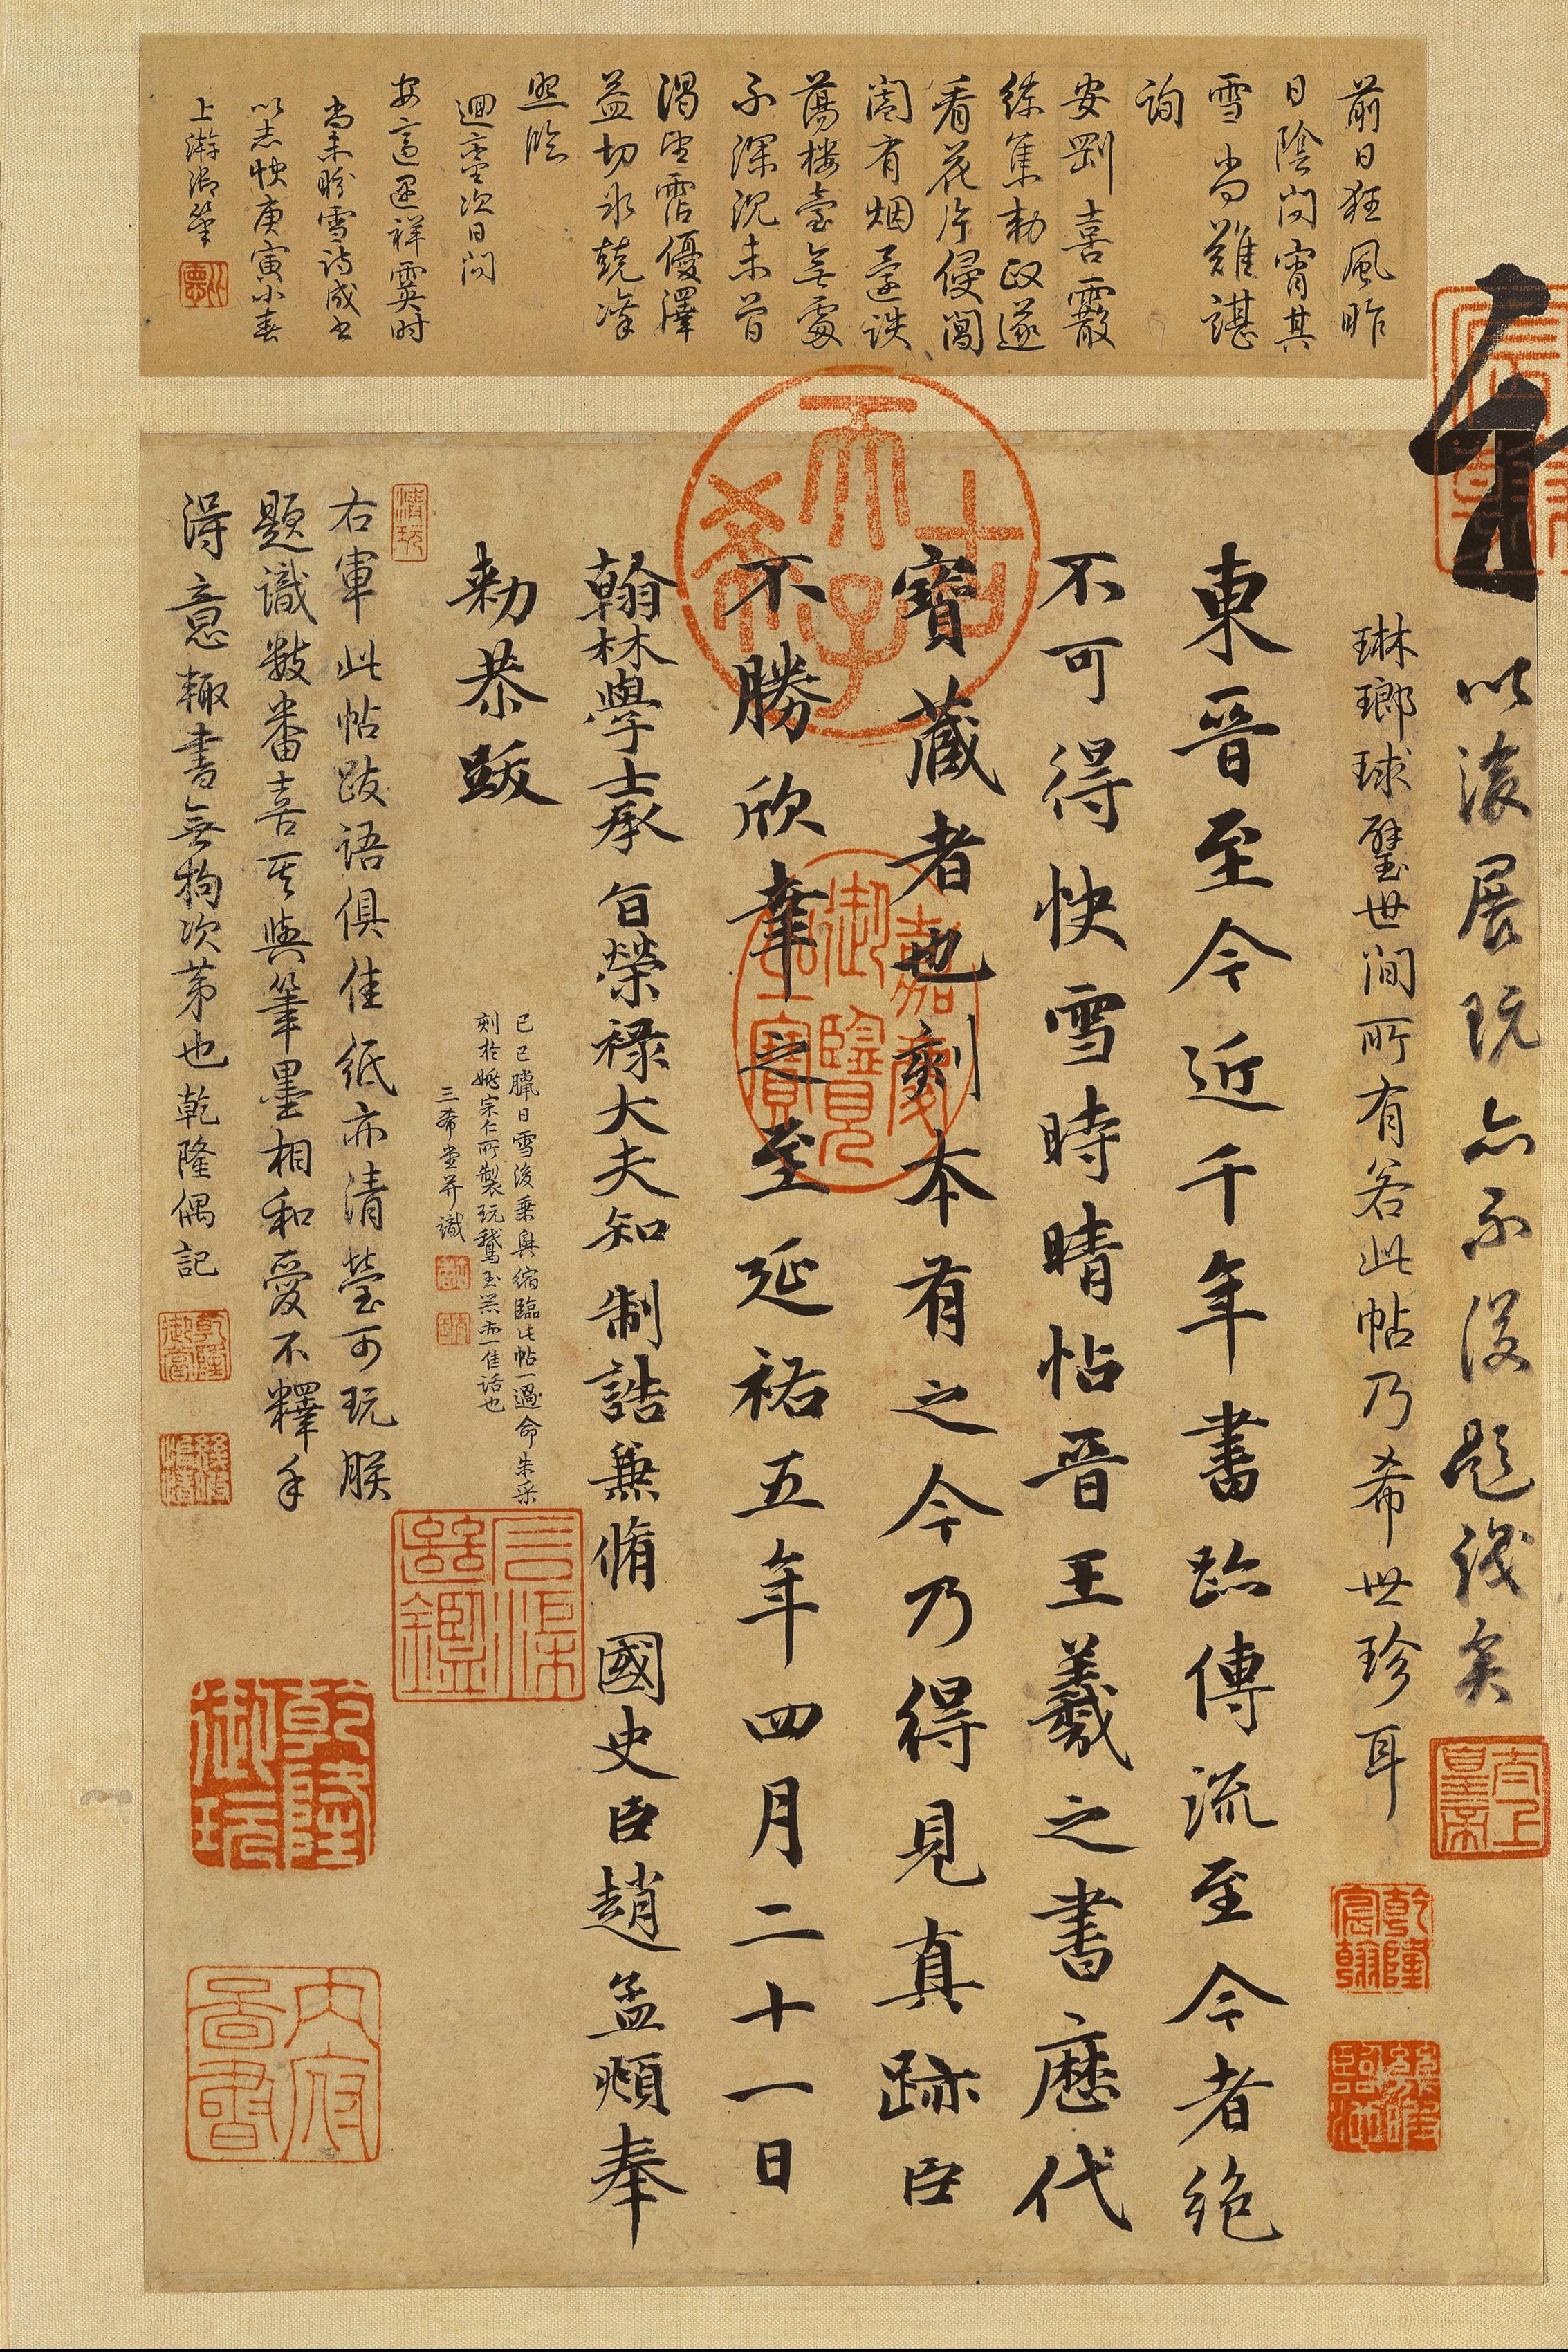 以後展玩亦不復題識矣
琳瑯球璧世間所有若此帖乃希世珍耳
東晉至今近千年書跡傳流至今者絕
不可得快雪時晴帖晉王羲之書歷代
寶藏者也刻本有之今乃得見真跡臣
不勝欣幸之至延祐五年四月二十一日
翰林學士承旨榮祿大夫知制誥兼脩國史臣趙孟頫奉
勅恭跋
己巳臘日雪後乘輿縮臨此帖一過命朱采
刻於姚宗仁所製玩鵝玉器亦一佳話也
三希堂并識
右軍此帖跋語俱佳紙亦清瑩可玩朕
題識數番喜其與筆墨相和愛不釋手
得意輒書無拘次第也乾隆偶記
前日狂風昨
日陰問宵其
雪尚難諶
詢
安剛喜霰
綜集勅政遂
看花片侵閶
闔有烟迷
蕩樓臺無處
不深況未曾
渴望霑優澤
益切求兢凜
照臨
迴鑾次日問
安適逢祥霙时
尚未盼雪诗成书
以志快庚寅小春
上澣御筆
古希天子
嘉慶御覽之寶
清玩
太上皇帝
乾隆宸翰
乾隆御玩
內府圖書